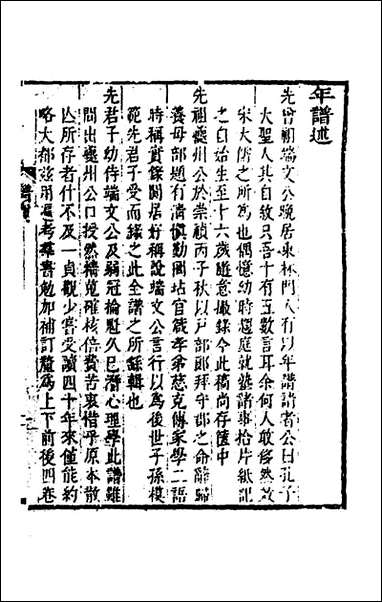 年譜述
先曾祖端文公晚居東林門人有以年譜請者公曰孔子
大聖人其自敘只吾十有五數言耳余何人敢修然效
宋大儒之所為也偶憶幼時趨庭就塾諸事拾片紙記
之自始生至十六歲隨意撮錄今此稿尚存篋中
先祖夔州公於崇禎丙子秋以戶部郎拜守郡之命辭歸
養母部題有清慎勤園站官箴孝弟慈克傳家學二語
時稱實錄閒居好稱說端文公言行以為後世子孫模
範先君子受而錄之此全譜之所繇輯也
先君子幼侍端文公及弱冠掄魁久已潛心理學此譜雖
間出夔州公口授然精蒐確核倍費苦衷惜乎原本散
亾所存者什不及一貞觀少嘗受讀四十年來僅能約
略大都茲用遍考羣書勉加補訂釐為上下前後四卷